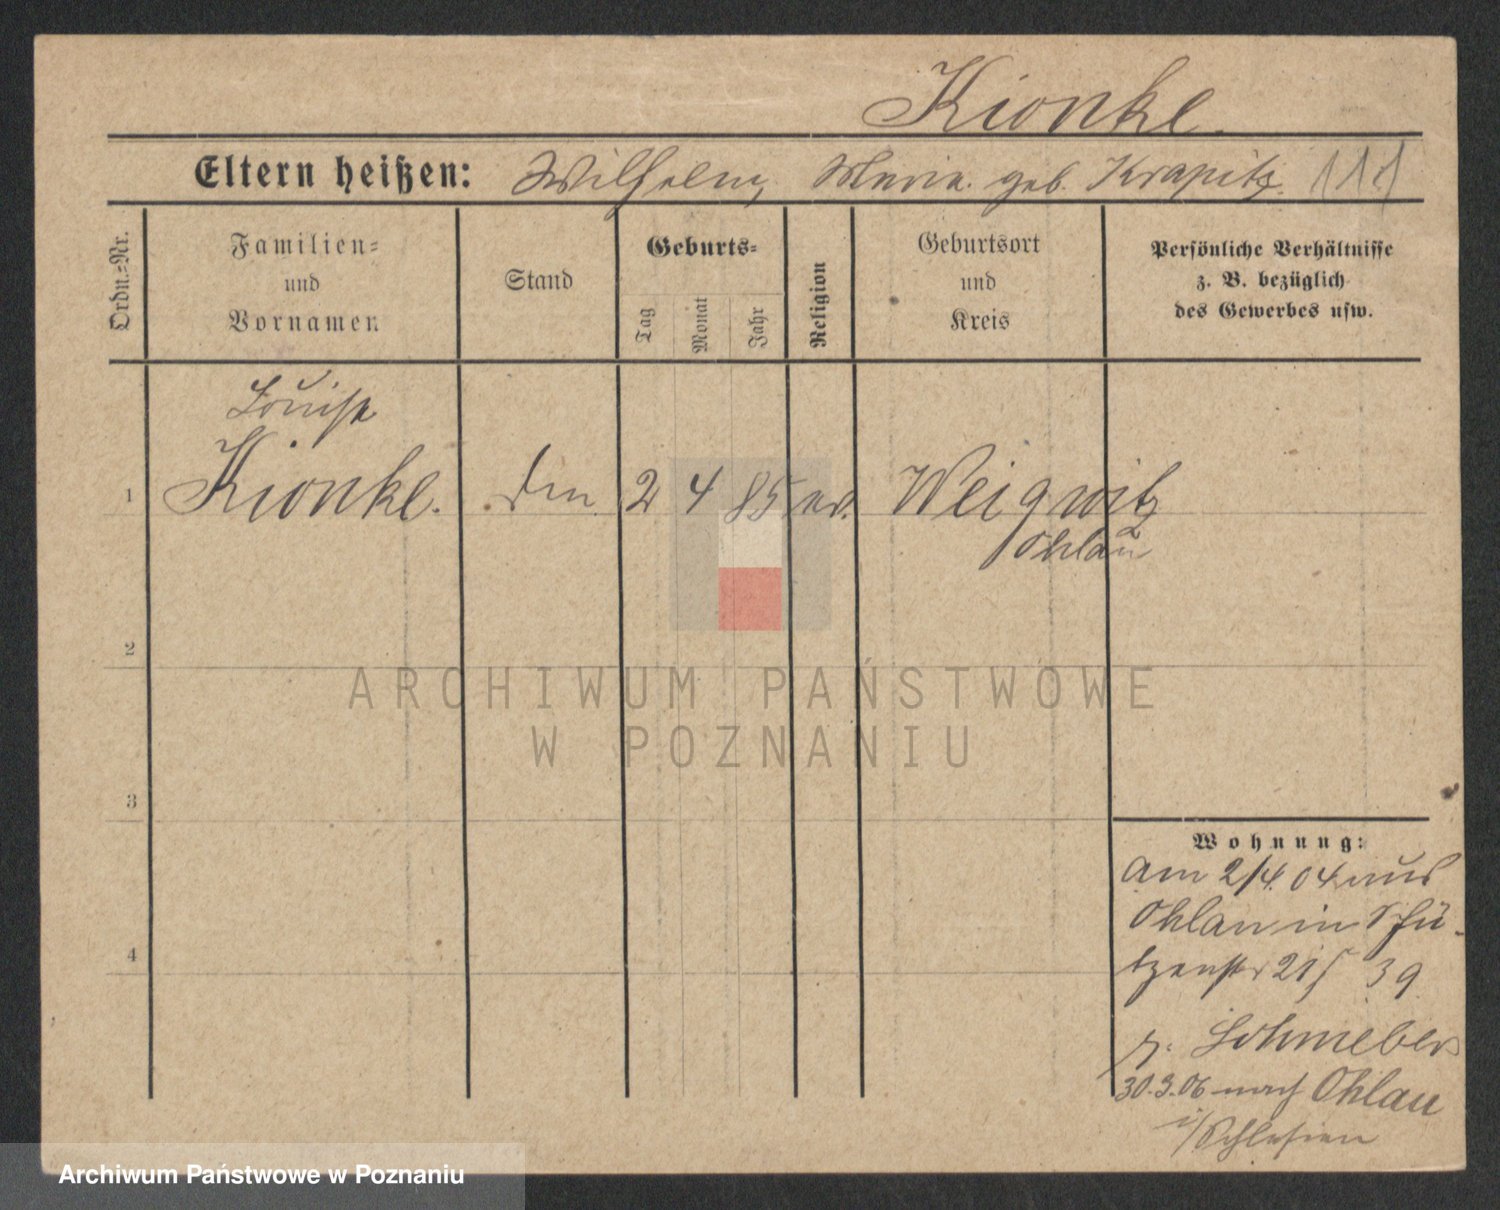 Kionke.
Eltern heißen: Wilhelm, Maria geb. Krapitz.
Ordn.=Nr.
Familien=
und
Vornamen
Stand
Geburts=
Tag
Monat
Jahr
Religion
Geburtsort
und
Kreis
Persönliche Verhältnisse
z. B. bezüglich
des Gewerbes usw.
Louise
1 Kionke. 2 4 85 ev. Weigwitz
Ohlau
2
ARCHIWUM PAŃSTWOWE
W POZNANIU
3
Wohnung:
Am 2/4. 04 aus
Ohlau in Schü-
4
tzenstr 21 39
30.3.06 nach Ohlau
i/Schlesien
Archiwum Państwowe w Poznaniu